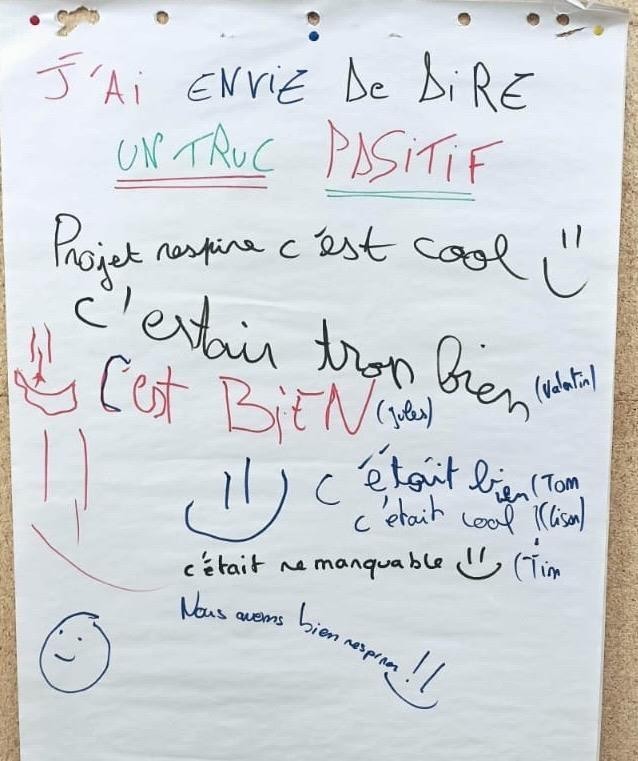 J'Ai ENViE De DiRE
UN TRUC POSiTiF
Projet respire c'est cool
c'estair trop bien (Valentin)
C'est BiEN (Jules)
c'étôit bien (Tom
c'était cool !(Lison)
c'était remanquable (Tim
Nous avons bien respirer !!